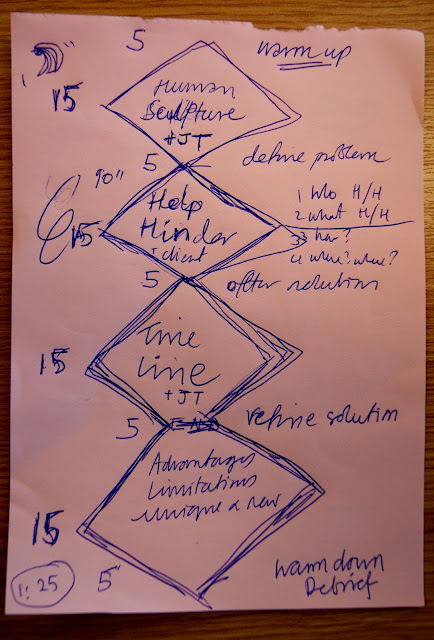 5 warm up
15
Human
Sculpture
+JT
5
define problem
90"
15
Help
Hinder
1 client
1 who H/H
2 what H/H
3 how?
4 where? when?
5
offer solutions
15
Time
Line
+JT
5
refine solution
Advantages
Limitations
Unique & new
15
5"
1:25
warm down
Debrief